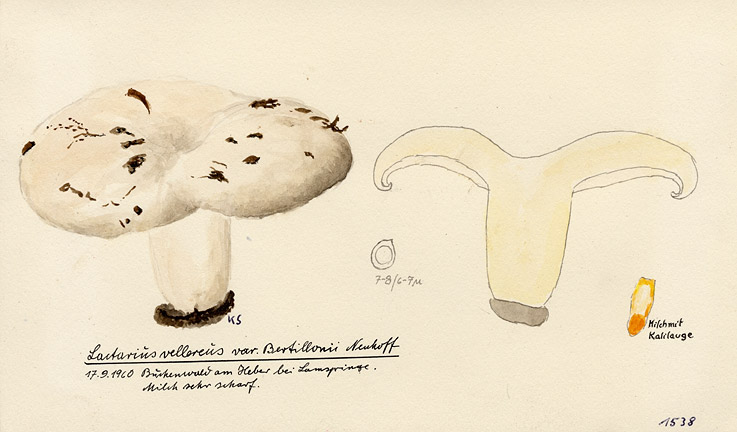 KS
7-8/6-7µ
Milch mit
Kalilauge
Lactarius vellereus var. Bertillonii Neuhoff
17.9.1960 Buchenwald am Heber bei Lamspringe.
Milch sehr scharf.
1538